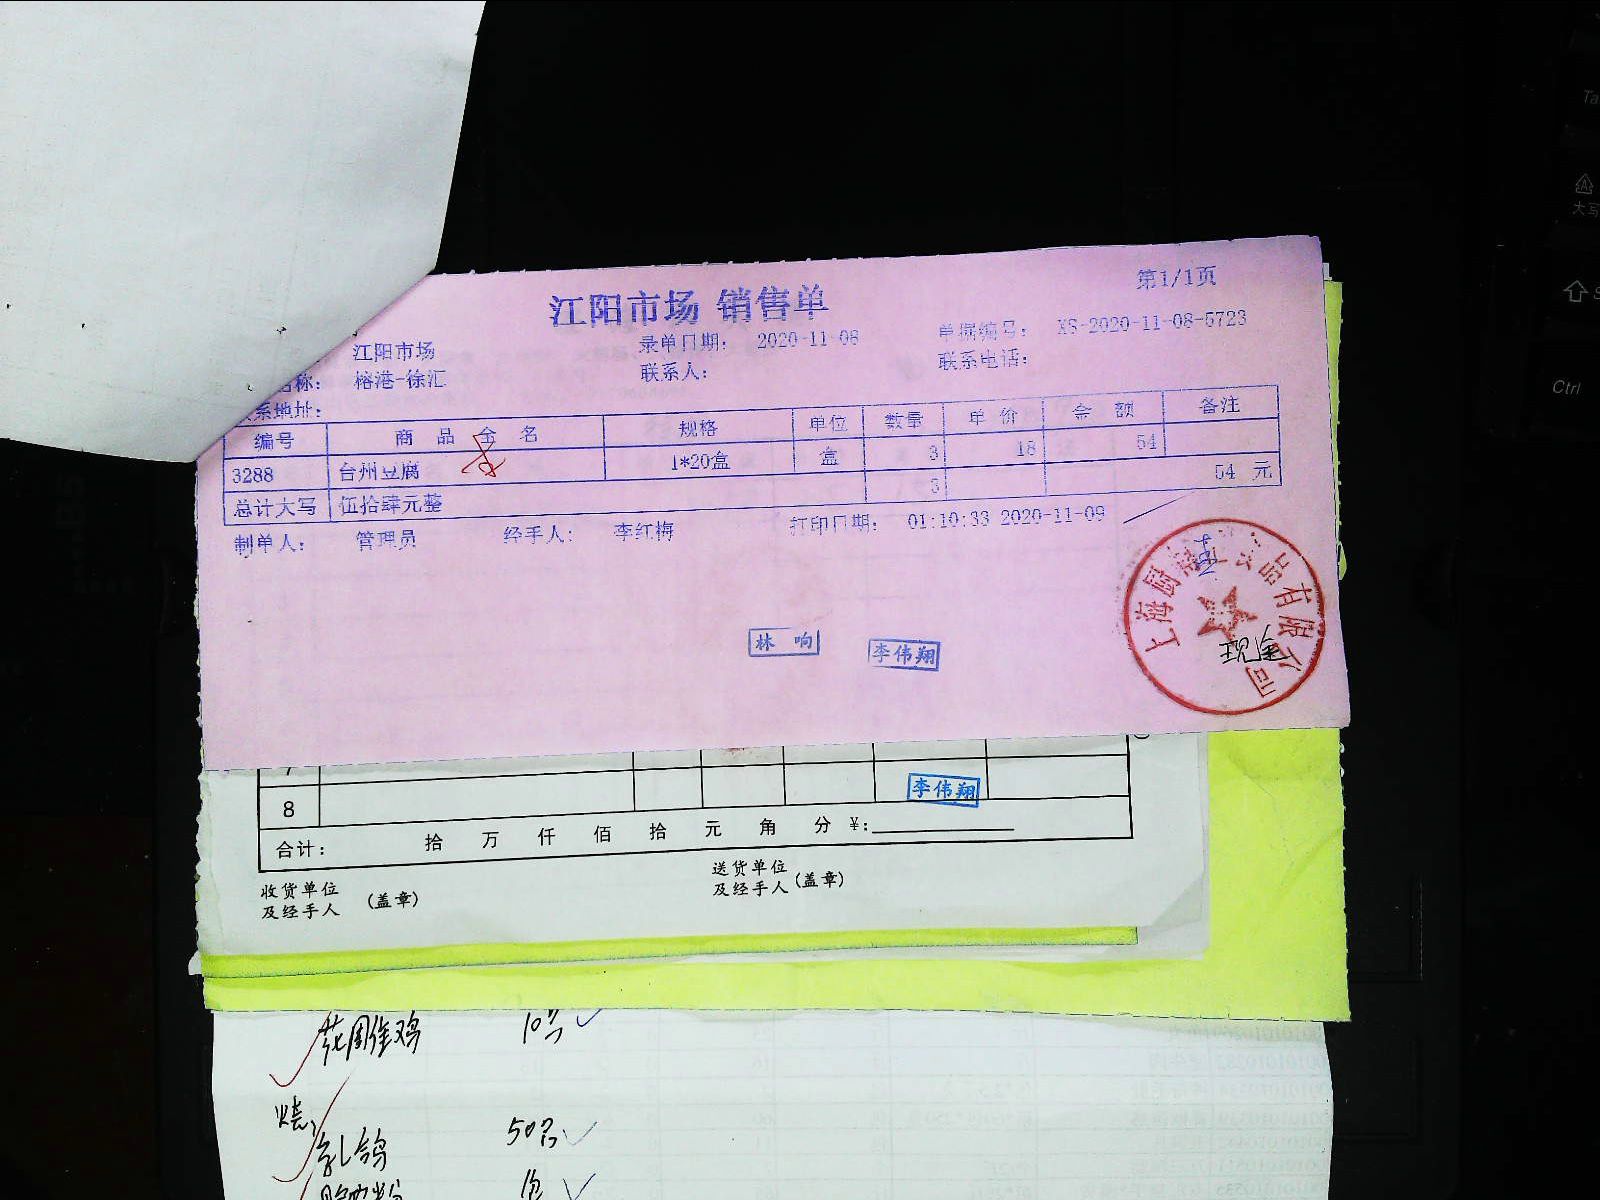 第1/1页
江阳市场 销售单
江阳市场 录单日期: 2020-11-08 单据编号: XS-2020-11-08-5723
名称: 榕港-徐汇 联系人: 联系电话:
系地址:
编号 商品全名 规格 单位 数量 单价 金额 备注
3288 台州豆腐 1*20盒 盒 3 18 54
总计大写 伍拾肆元整 3 54 元
制单人: 管理员 经手人: 李红梅 打印日期: 01:10:33 2020-11-09
林响 李伟翔
上海厨 品有限公司
7
8 李伟翔
合计: 拾 万 仟 佰 拾 元 角 分 ¥:
收货单位 送货单位
及经手人 (盖章) 及经手人 (盖章)
10只
烧
乳鸽 50只
Ctrl